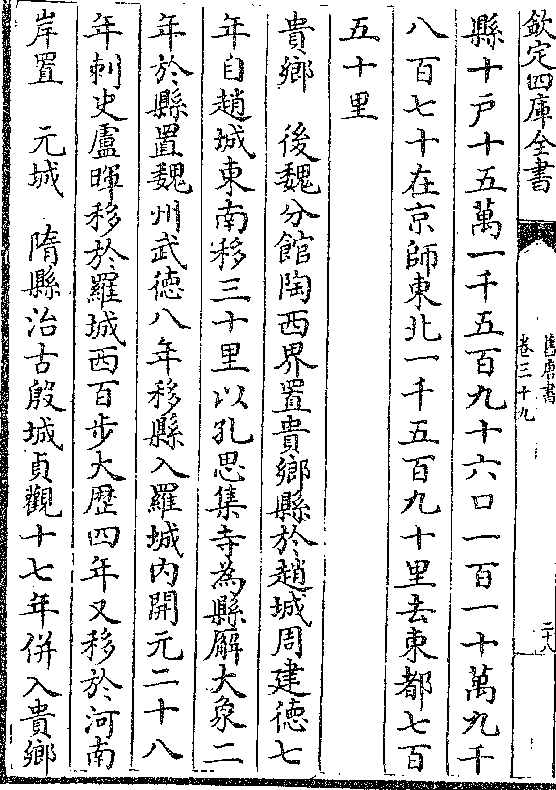 欽定四庫全書
舊唐書
卷三十九
二十八
縣十戶十五萬一千五百九十六口一百一十萬九千
八百七十在京師東北一千五百九十里去東都七百
五十里
貴鄉　後魏分館陶西界置貴鄉縣於趙城周建德七
年自趙城東南移三十里以孔思集寺為縣廨大象二
年於縣置魏州武德八年移縣入羅城內開元二十八
年刺史盧暉移於羅城西百步大歷四年又移於河南
岸置　元城　隋縣治古殷城貞觀十七年併入貴鄉